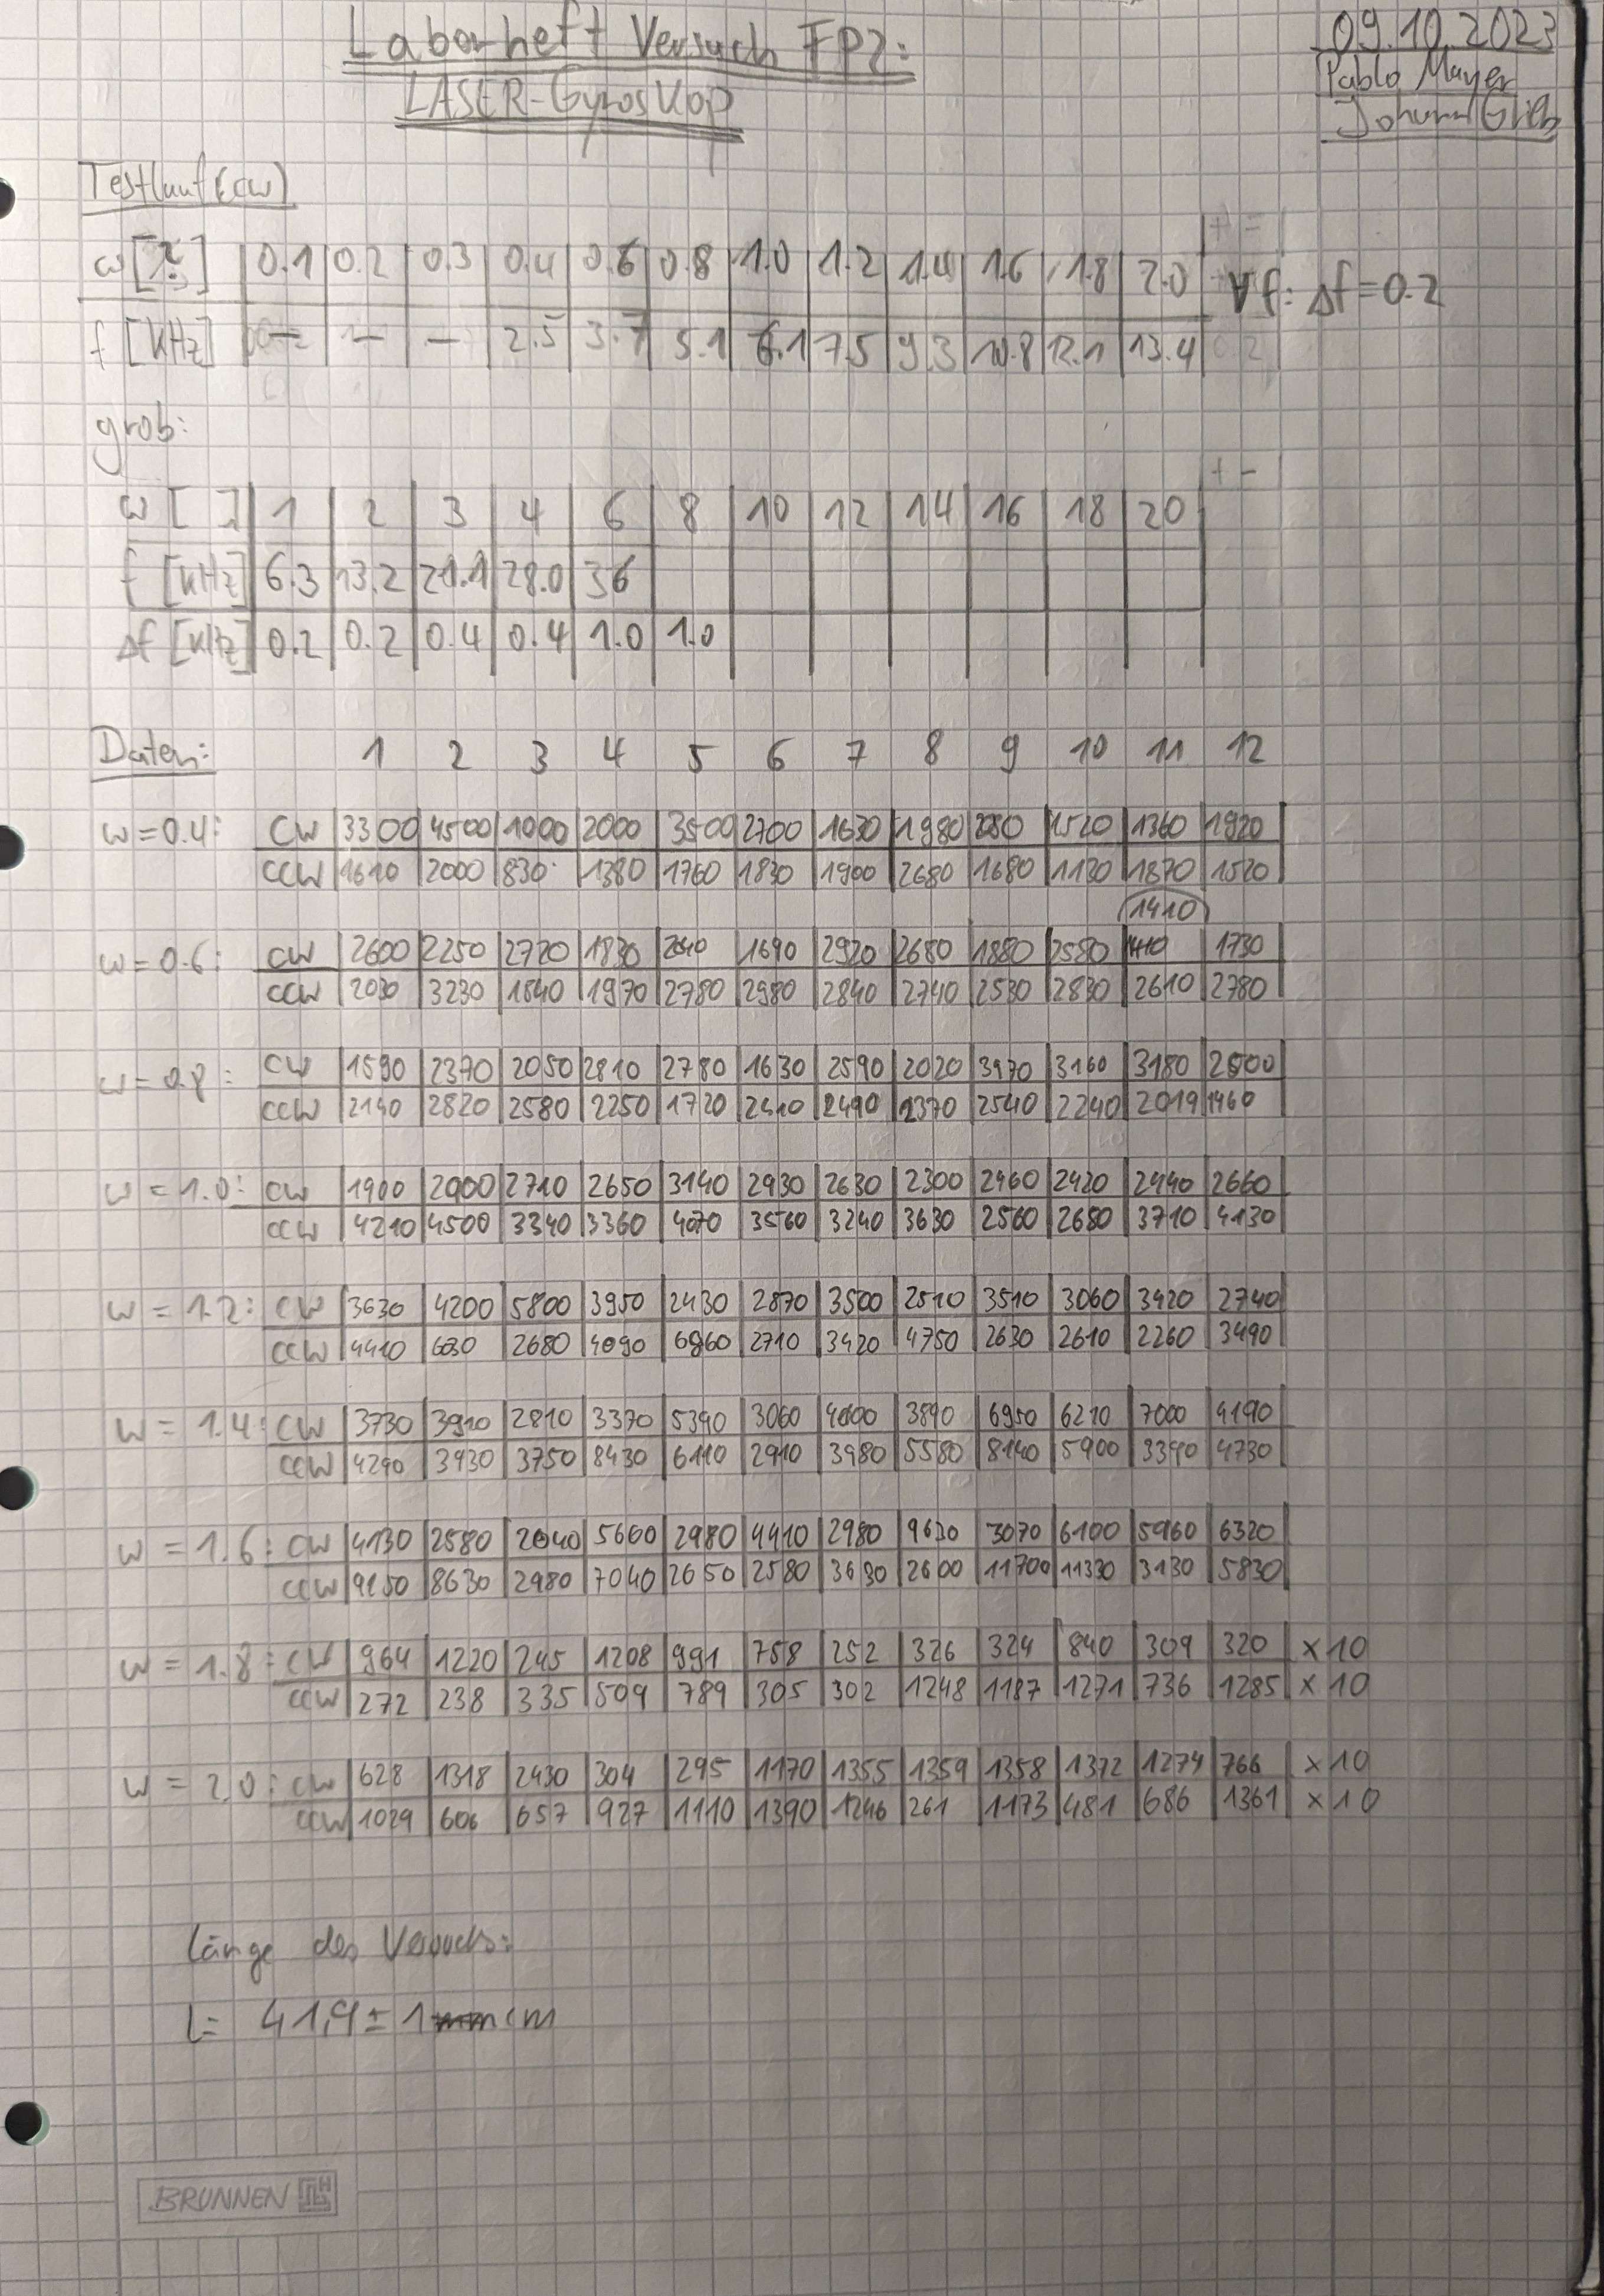 Laborheft Versuch FP2:
LASER-Gyroskop
09.10.2023
Pablo Mayer
Johann
Testlauf (cw)
ω 0.1 0.2 0.3 0.4 0.6 0.8 1.0 1.2 1.4 1.6 1.8 2.0 ∀f: Δf=0.2
f [kHz] — — — 2.5 3.7 5.1 6.1 7.5 9.3 10.8 12.1 13.4
grob:
+ -
ω [ ] 1 2 3 4 6 8 10 12 14 16 18 20
f [kHz] 6.3 13.2 21.1 28.0 36
Δf [kHz] 0.2 0.2 0.4 0.4 1.0 1.0
Daten: 1 2 3 4 5 6 7 8 9 10 11 12
ω=0.4: CW 3300 4500 1000 2000 3500 2700 1630 1980 1520 1360 1920
CCW 1610 2000 830 1380 1760 1830 1900 2680 1680 1130 1870 1520
(1410)
ω=0.6: CW 2600 2250 2720 1830 2040 1690 2920 2680 1880 2580 1410 1730
CCW 2030 3230 1540 1970 2780 2980 2840 2740 2530 2830 2610 2780
ω=0.8: CW 1590 2370 2050 2810 2780 1630 2590 2020 3970 3160 3180 2500
CCW 2140 2820 2580 2250 1720 2410 2490 2370 2540 2240 2019 1460
ω=1.0: CW 1900 2900 2710 2650 3140 2930 2630 2300 2460 2420 2440 2660
CCW 4210 4500 3340 3360 4070 3560 3240 3630 2560 2680 3710 4130
ω=1.2: CW 3630 4200 5800 3950 2430 2870 3500 2510 3510 3060 3420 2740
CCW 4410 6030 2680 4090 6860 2710 3420 4750 2630 2610 2260 3490
ω = 1.4: CW 3730 3910 2810 3370 5390 3060 4000 3890 6950 6210 7000 4190
CCW 4290 3930 3750 8430 6110 2910 3980 5580 8140 5900 3390 4730
ω = 1.6: CW 4130 2580 2040 5600 2980 4410 2980 9630 3070 6100 5960 6320
CCW 9150 8630 2980 7040 2650 2580 3630 2600 11700 11330 3130 5830
ω = 1.8: CW 964 1220 245 1208 991 758 252 326 324 840 309 320 ×10
CCW 272 238 335 509 789 305 302 1248 1187 1271 736 1285 ×10
ω = 2.0: CW 628 1318 2430 304 295 1170 1355 1359 1358 1372 1274 766 ×10
CCW 1029 606 657 927 1110 1390 1246 261 1173 481 686 1361 ×10
Länge des Versuchs:
L= 41,9 ± 1 cm
BRUNNEN